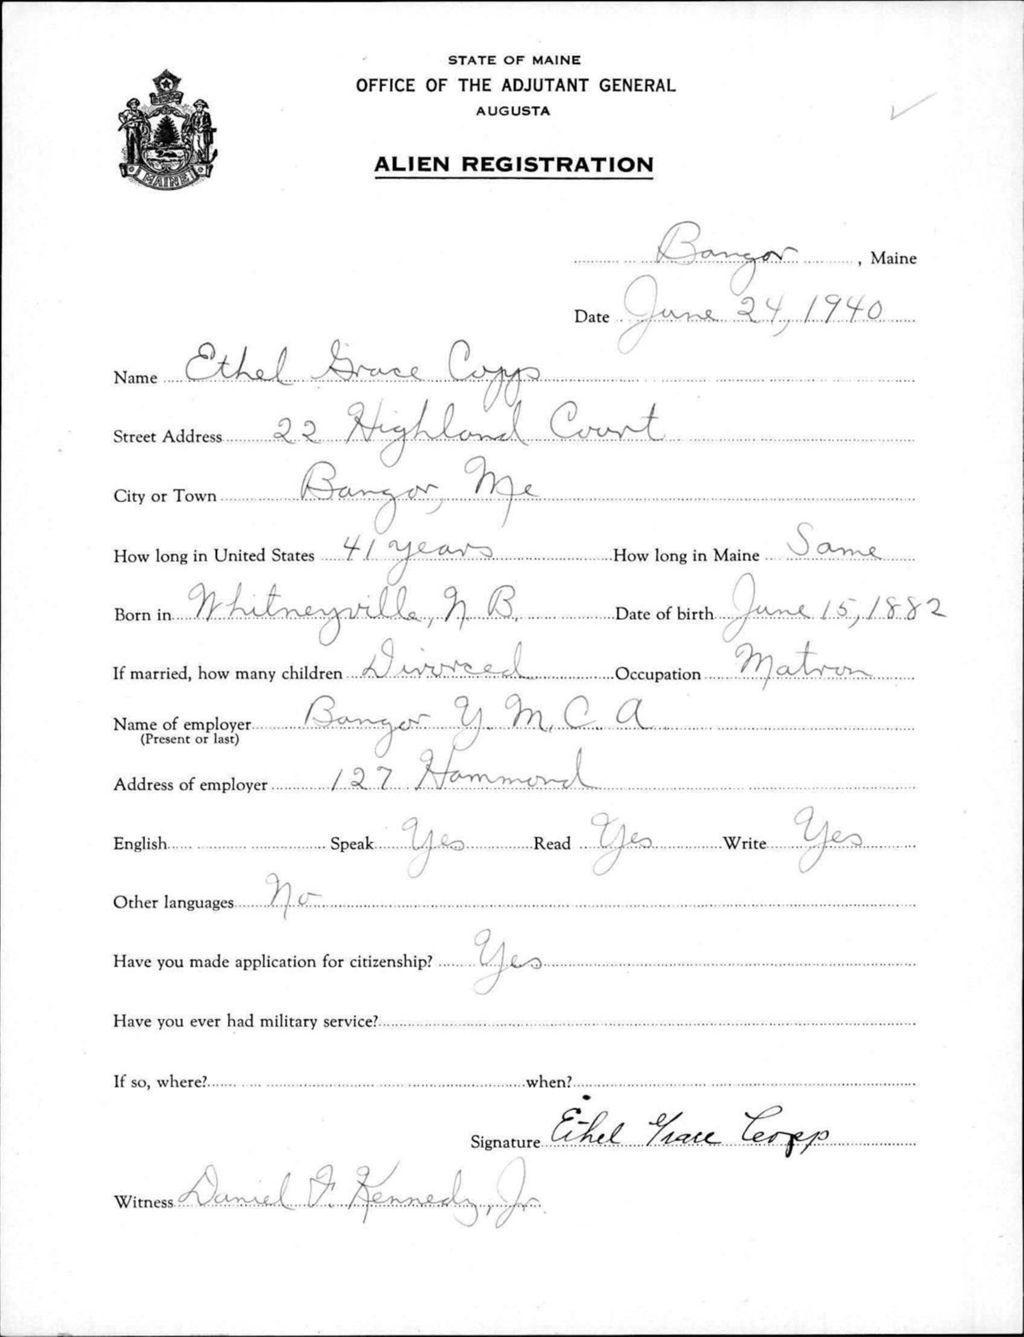 STATE OF MAINE
OFFICE OF THE ADJUTANT GENERAL
AUGUSTA
ALIEN REGISTRATION
MAINE
Bangor, Maine
Date June 24, 1940
Name Ethel Grace Copp
Street Address 22 Highland Court
City or Town Bangor, Me
How long in United States 41 years How long in Maine Same
Born in Whitneyville, N. B. Date of birth June 15, 1882
If married, how many children Divorced Occupation Matron
Name of employer Bangor Y. M. C. A
(Present or last)
Address of employer 127 Hammond
English Speak Yes Read Yes Write Yes
Other languages No
Have you made application for citizenship? Yes
Have you ever had military service?
If so, where? when?
Signature Ethel Grace Copp
Witness Daniel F. Kennedy, Jr.